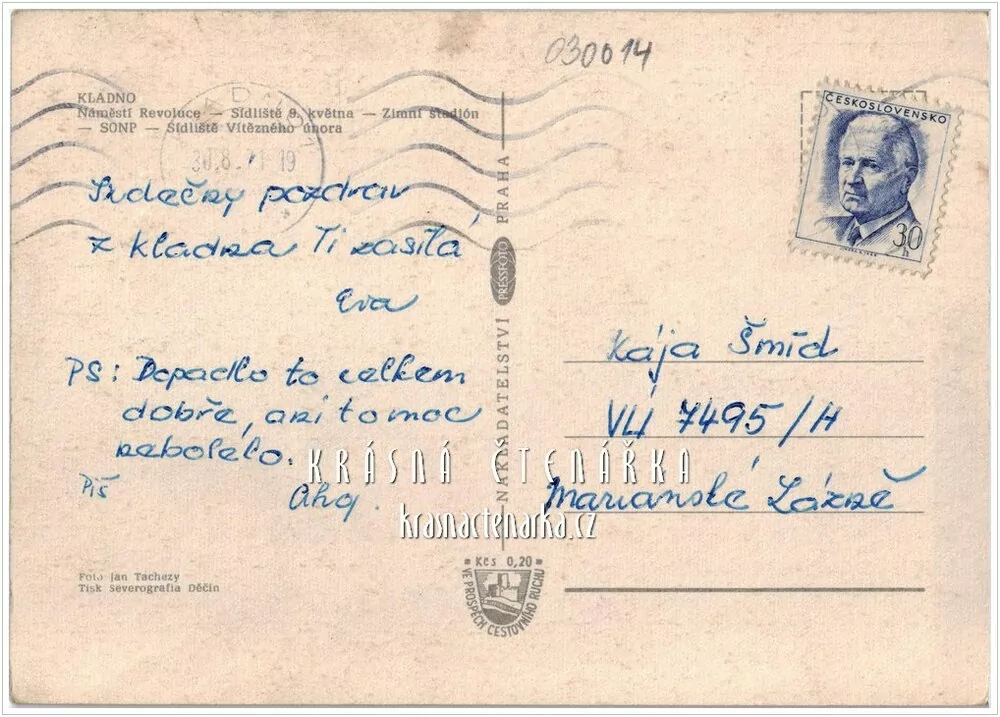 030014
KLADNO
Náměstí Revoluce — Sídliště 9. května — Zimní stadión
— SONP — Sídliště Vítězného února
30.8. 71-19
ČESKOSLOVENSKO
30
h
Srdečný pozdrav
z Kladna Ti zasílá
Eva
PS: Dopadlo to celkem
dobře, ani to moc
nebolelo.
Piš
Ahoj.
Foto Jan Tachezy
Tisk Severografia Děčín
NAKLADATELSTVÍ PRESSFOTO PRAHA
Kčs 0,20
VE PROSPĚCH CESTOVNÍHO RUCHU
Kája Šmíd
VÚ 7495/H
Marianské Lázně
KRÁSNÁ ČTENÁŘKA
krasnactenarka.cz